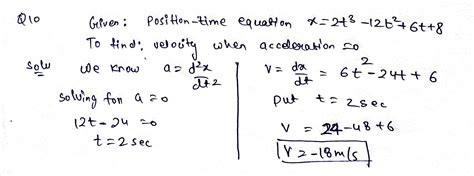 Q10 Given: Position-time equation x=2t³-12t²+6t+8
To find: velocity when acceleration =0
Solu We know a = d²x/dt2
solving for a =0
12t - 24 =0
t = 2 sec
V = dx/dt = 6t² - 24t + 6
Put t = 2sec
V = 24-48+6
V = -18m/s